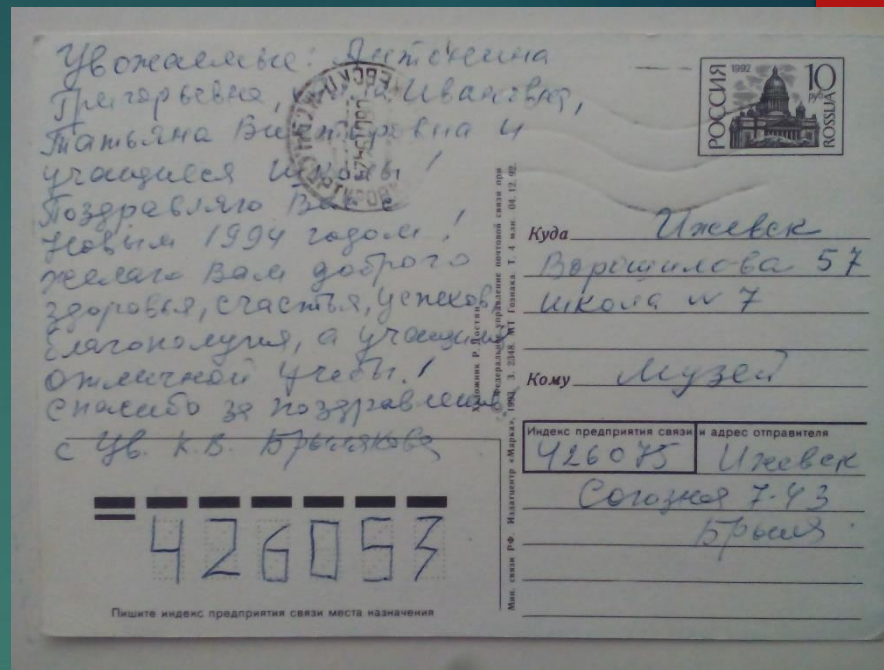 Уважаемые: Антонина
Григорьевна, Ивановна,
Татьяна Викторовна и
учащиеся школы!
Поздравляю Вас с
Новым 1994 годом!
желаю Вам доброго
здоровья, счастья, успехов
благополучия, а учащимся
отличной учебы!
Спасибо за поздравление
с Ув. К.В. Брылякова
426053
Пишите индекс предприятия связи места назначения
Мин. связи РФ. Издатцентр «Марка», 1993. З. 2348. МТ Гознака. Т. 4 млн. 04.12.92.
Художник Р. Достян
© Федеральное управление почтовой связи при
РОССИЯ
1992
10
руб
ROSSIJA
Куда Ижевск
Ворошилова 57
школа N 7
Кому Музей
Индекс предприятия связи и адрес отправителя
426075 Ижевск
Союзная 7-43